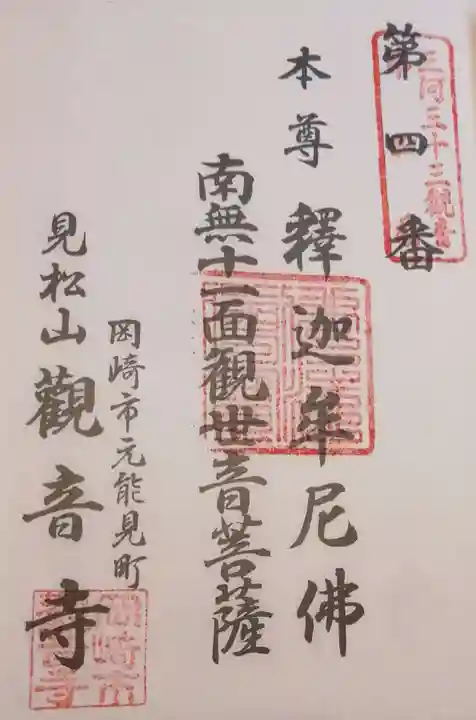 第四番
三河三十三観音
本尊釋迦牟尼佛
南無十一面観世音菩薩
岡崎市元能見町
見松山觀音寺